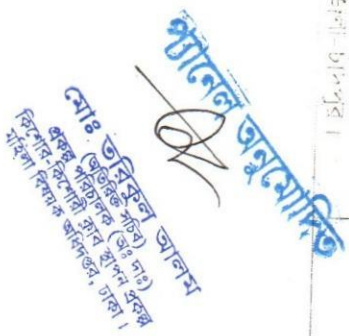 প্যানেল অনুমোদিত
মোঃ তরিকুল আলম
(অতিরিক্ত সচিব)
প্রকল্প পরিচালক (অঃ দাঃ)
কিশোর-কিশোরী ক্লাব স্থাপন প্রকল্প
মহিলা বিষয়ক অধিদপ্তর, ঢাকা।